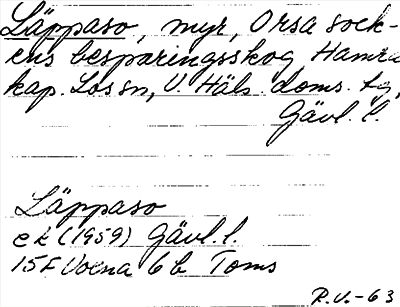 Läppaso, myr, Orsa sock-
ens besparingsskog Hamra
kap. Lossn, V. Häls. doms. tg,
Gävl. l.
Läppaso
ek (1959) Gävl. l.
15F Voxna 6b Toms
R.V.-63